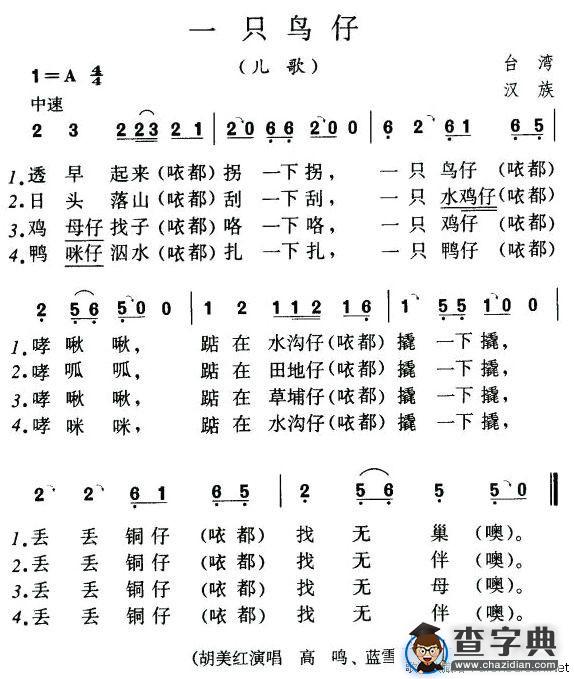 一只鸟仔
(儿歌)
1=A 4/4
台湾
中速
汉族
2 3 2 2 3 2 1 | 2 0 6 6 2 0 0 | 6 2 6 1 6 5 |
1.透早起来(咴都)拐一下拐，一只鸟仔(咴都)
2.日头落山(咴都)刮一下刮，一只水鸡仔(咴都)
3.鸡母仔找子(咴都)咯一下咯，一只鸡仔(咴都)
4.鸭咪仔泅水(咴都)扎一下扎，一只鸭仔(咴都)
2 5 6 5 0 0 | 1 2 1 1 2 1 6 | 1 5 5 1 0 0 |
1.哮啾啾，踮在水沟仔(咴都)撬一下撬，
2.哮呱呱，踮在田地仔(咴都)撬一下撬，
3.哮啾啾，踮在草埔仔(咴都)撬一下撬，
4.哮咪咪，踮在水沟仔(咴都)撬一下撬，
2 2 6 1 6 5 | 2 5 6 5 5 0 ‖
1.丢丢铜仔(咴都)找无巢(噢)。
2.丢丢铜仔(咴都)找无伴(噢)。
3.丢丢铜仔(咴都)找无母(噢)。
4.丢丢铜仔(咴都)找无伴(噢)。
(胡美红演唱 高鸣、蓝雪
查字典
www.chazidian.com